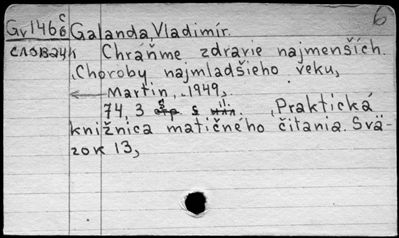 6
Gv1466 c Galanda, Vladimír.
словацк. Chráňme zdravie najmenších.
Choroby najmladšieho veku,
Martin, 1949,
74, 3 стр. s илл. Praktická
knižnica matičného čítania. Svä-
zok 13,